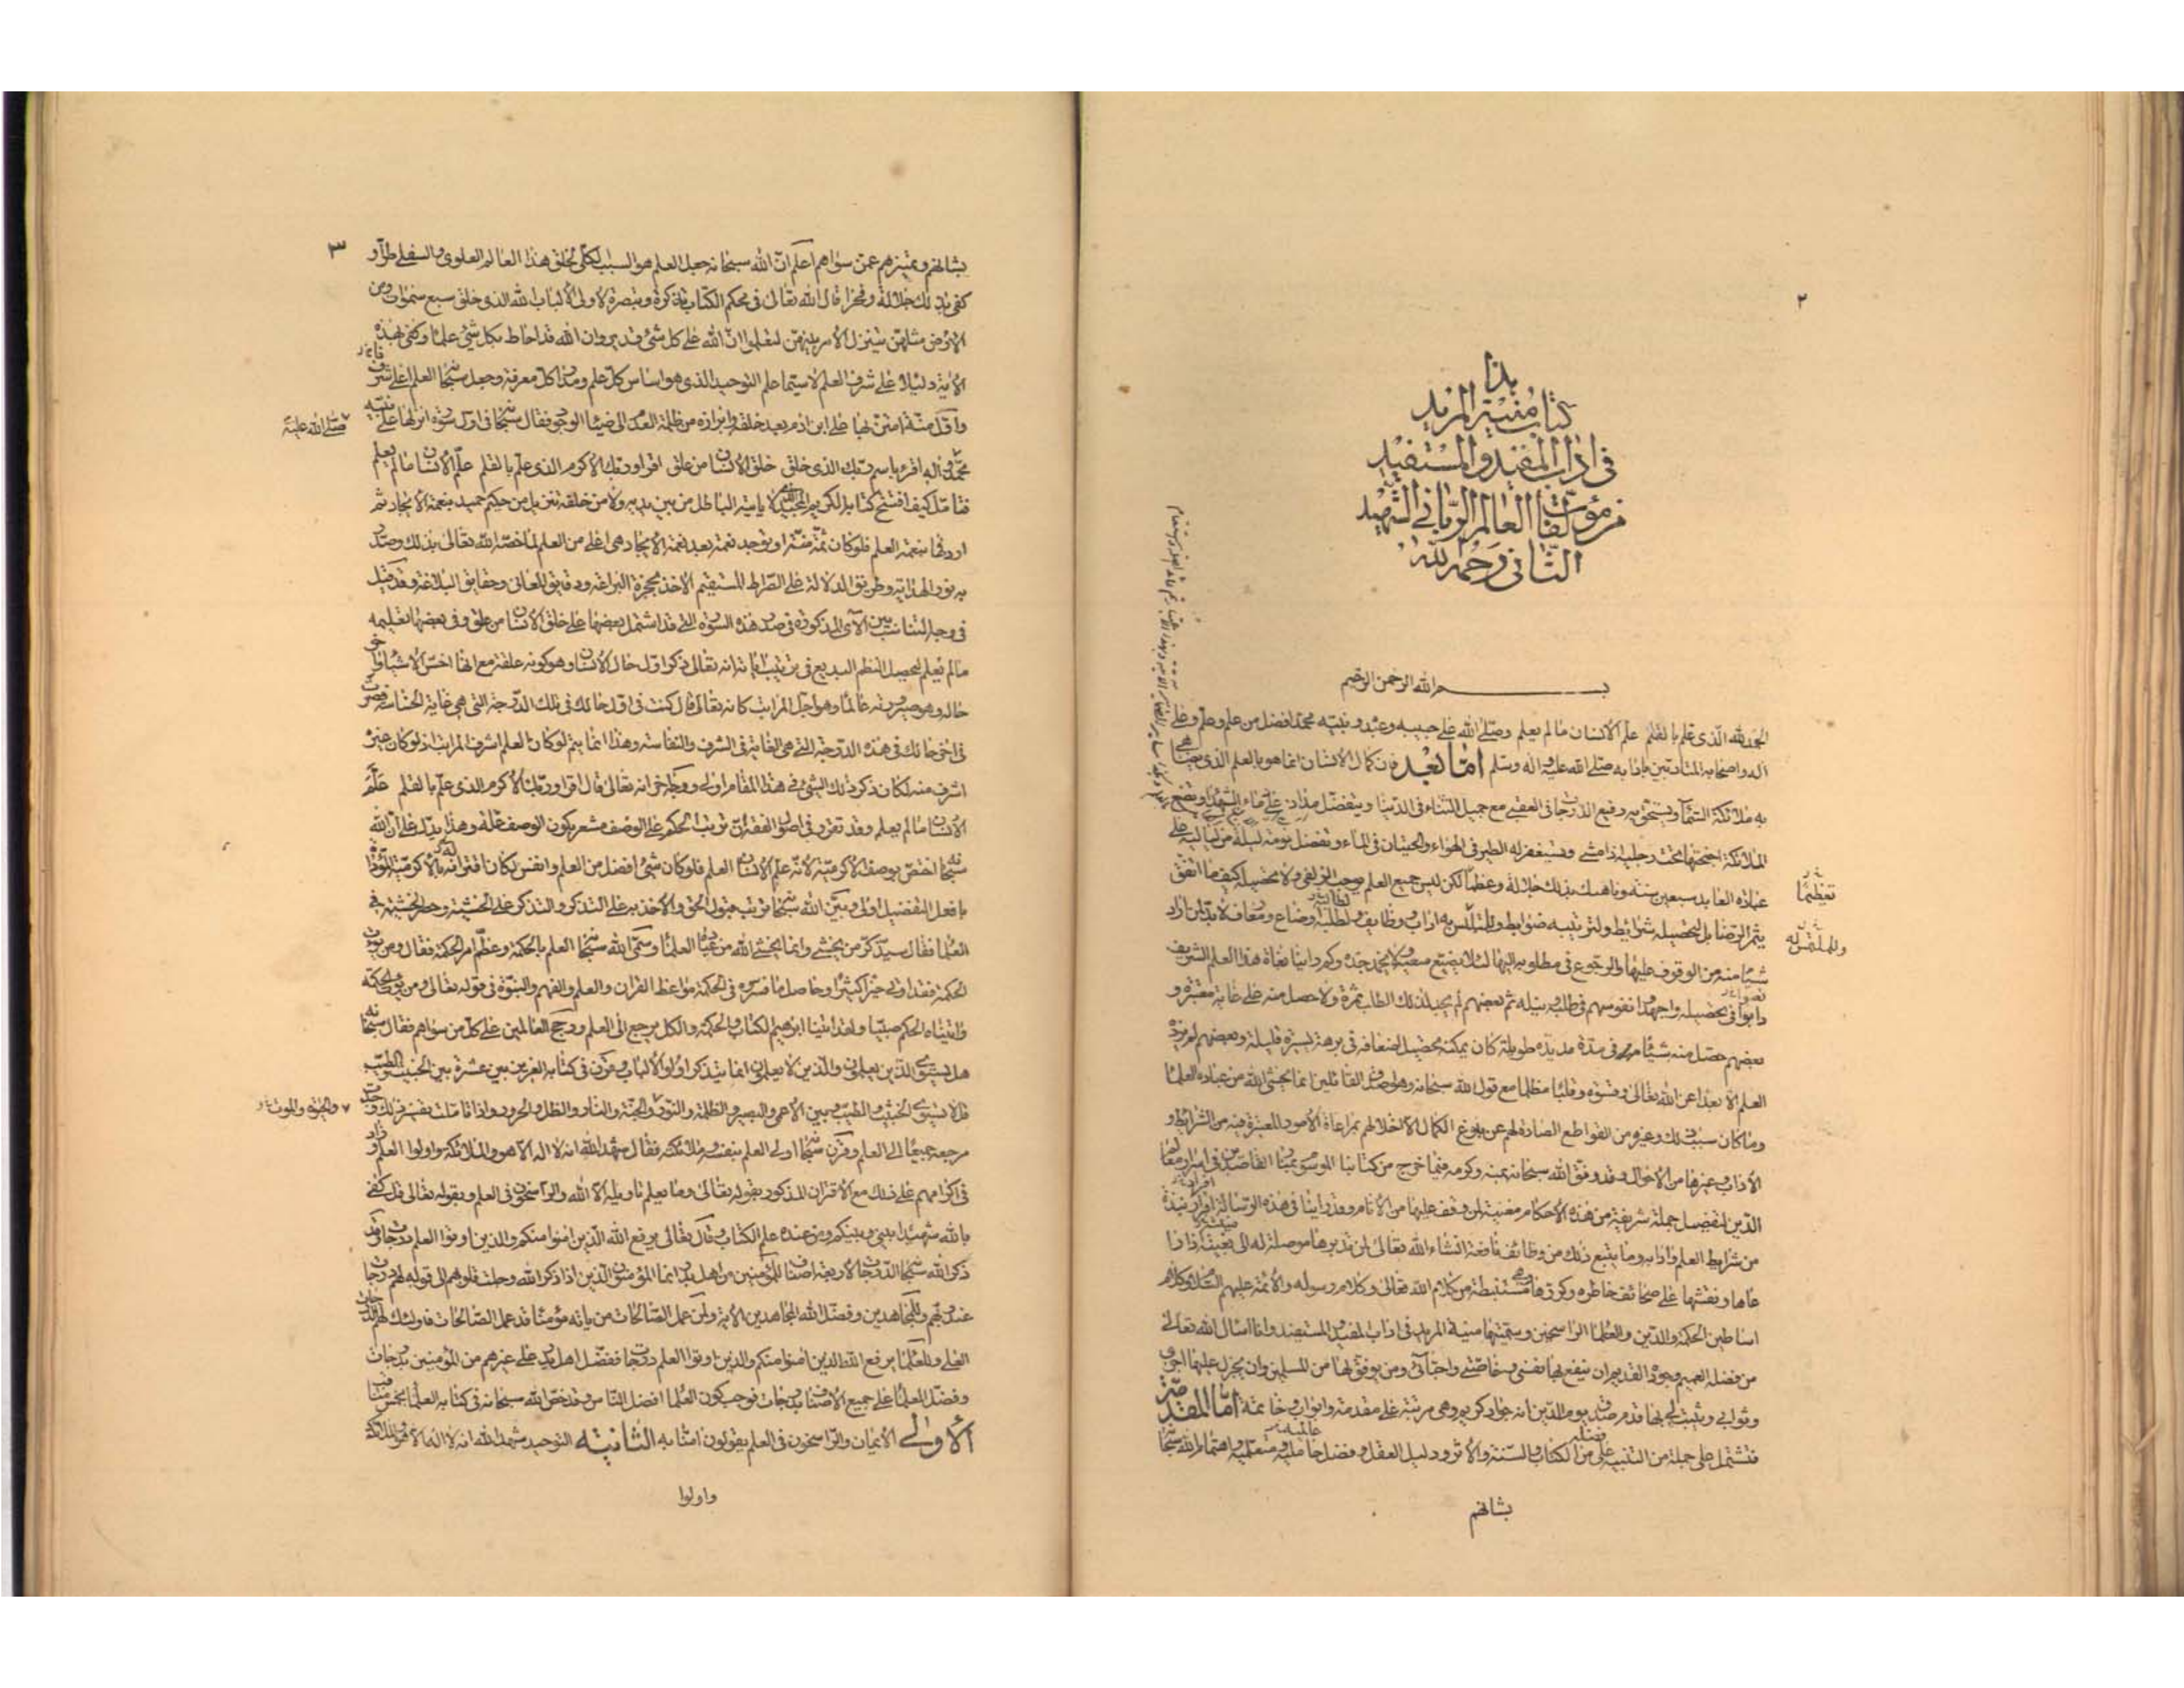 ٢
هذا
كتاب منية المريد
في اداب المفيد والمستفيد
من مؤلفات العالم الرباني الشهيد
الثاني رحمه الله
بسم الله الرحمن الرحيم
الحمد لله الذي علم بالقلم علم الانسان ما لم يعلم وصلى الله على حبيبه وعبده ونبيه محمد افضل من علم وعلم وعلى
اله واصحابه المتادبين بادابه صلى الله عليه واله وسلم اما بعد فان كمال الانسان انما هو بالعلم الذي يضاهي
به ملائكة السماء ويستحق به رفيع الدرجات في العقبى مع جميل الثناء في الدنيا ويتفضل مداده على دماء الشهداء وتضع
الملائكة اجنحتها تحت رجليه اذا مشى ويستغفر له الطير في الهواء والحيتان في الماء وتفضل نومة ليلة من لياليه على
عبادة العابد سبعين سنة وناهيك بذلك جلالة وعظما لكن ليس جميع العلم يوجب الزلفى ولا تحصيله كيف ما اتفق
تعظيما
يثمر الرضا بل لتحصيله شرائط ولترتيبه ضوابط وللمتلبس به اداب ووظايف ولطلبه اوضاع ومعارف لا بد لمن اراد
وللملتمس له
شيئا منه من الوقوف عليها والرجوع في مطلوبه اليها لئلا يضيع سعيه ولا يخمد جده وكم راينا بغاة هذا العلم الشريف
دابوا في تحصيله واجهدوا نفوسهم في طلبه ونيله ثم بعضهم لم يجد لذلك الطلب ثمرة ولا حصل منه على غاية معتبرة و
بعضهم حصل منه شيئا في مدة مديدة طويلة كان يمكنه تحصيل اضعافه في برهة يسيرة قليلة وبعضهم لم يزده
العلم الا بعدا عن الله تعالى وقسوة وقلبا مظلما مع قول الله سبحانه وهو اصدق القائلين انما يخشى الله من عباده العلماء
وما كان سبب ذلك وغيره من القواطع الصادة لهم عن بلوغ الكمال الا اخلالهم بمراعاة الامور المعتبرة فيه من الشرائط و
الاداب وغيرها من الاحوال وقد وفق الله سبحانه بمنه وكرمه فيما خرج من كتابنا الموسوم بمنار القاصدين في اسرار معالم
الدين لتفصيل جملة شريفة من هذه الاحكام مغنية لمن وقف عليها من الانام وقد راينا في هذه الرسالة افراد نبذة
من شرايط العلم وادابه وما يتبع ذلك من وظائفه نافعة انشاء الله تعالى لمن تدبرها موصلة له الى بغيته اذا
عاها ونقشها على صحائف خاطره وكررها مستنبطة من كلام الله تعالى وكلام رسوله والائمة عليهم السلام وكلام
اساطين الحكمة والدين والعلماء الراسخين وسميتها منية المريد في اداب المفيد والمستفيد وانا اسال الله تعالى
من فضله العميم وجوده القديم ان ينفع بها نفسي وخاصتي واحبائي ومن يوفق لها من المسلمين وان يجزل عليها اجري
وثوابي ويثبت لي بها قدم صدق يوم الدين انه جواد كريم وهي مرتبة على مقدمة وابواب وخاتمة اما المقدمة
فتشتمل على جملة من التنبيه على فضله من الكتاب والسنة والاثر ودليل العقل وفضل حامليه ومتعلميه واهتمام الله سبحانه
بشانهم
٣
بشانهم وتميزهم عمن سواهم اعلم ان الله سبحانه جعل العلم هو السبب الكلي لخلق هذا العالم العلوي والسفلي طرا و
كفى بذلك جلالة وفخرا قال الله تعالى في محكم الكتاب تذكرة وتبصرة لاولي الالباب الله الذي خلق سبع سموات ومن
الارض مثلهن يتنزل الامر بينهن لتعلموا ان الله على كل شيء قدير وان الله قد احاط بكل شيء علما وكفى بهذه
الاية دليلا على شرف العلم لا سيما علم التوحيد الذي هو اساس كل علم ومدار كل معرفة وجعل سبحانه العلم اعلى شرف
واول منة امتن بها على ابن ادم بعد خلقه وابرازه من ظلمة العدم الى ضياء الوجود فقال سبحانه في اول سورة انزلها على نبيه
صلى الله عليه
محمد واله اقرء باسم ربك الذي خلق خلق الانسان من علق اقرا وربك الاكرم الذي علم بالقلم علم الانسان ما لم يعلم
فتامل كيف افتتح كتابه الكريم المجيد الذي لا ياتيه الباطل من بين يديه ولا من خلفه تنزيل من حكيم حميد بنعمة الايجاد ثم
اردفها بنعمة العلم فلو كان ثمة منة او توجد نعمة بعد نعمة الايجاد هي اعلى من العلم لما خصه الله تعالى بذلك وصدر
به نور الهداية وطريق الدلالة على الصراط المستقيم الاخذ بحجزة البراعة ودقايق المعاني وحقايق البلاغة وقد قيل
في وجه التناسب بين الاي المذكورة في صدر هذه السورة التي قد اشتمل بعضها على خلق الانسان من علق وفي بعضها تعليمه
ما لم يعلم ليحصل النظم البديع في ترتيب اياته انه تعالى ذكر اول حال الانسان وهو كونه علقة مع انها اخس الاشياء واخر
حاله وهو صيرورته عالما وهو اجل المراتب كانه تعالى قال كنت في اول حالك في تلك الدرجة التي هي غاية الخساسة فصرت
في اخر حالك في هذه الدرجة التي هي الغاية في الشرف والنفاسة وهذا انما يتم لو كان العلم اشرف المراتب اذ لو كان غيره
اشرف منه لكان ذكر ذلك الشيء في هذا المقام اولى ووجه اخر انه تعالى قال اقرا وربك الاكرم الذي علم بالقلم علم
الانسان ما لم يعلم وقد تقرر في اصول الفقه ان ترتيب الحكم على الوصف مشعر بكون الوصف علة وهذا يدل على ان الله
سبحانه اختص بوصف الاكرمية لانه علم الانسان العلم فلو كان شيء افضل من العلم وانفس لكان اقترانه بالاكرمية المؤداة
بافعل التفضيل اولى وبين الله سبحانه ترتيب قبول الحق والاخذ به على التذكر والتذكر على الخشية وحصر الخشية في
العلماء فقال سيذكر من يخشى وانما يخشى الله من عباده العلماء وسمى الله سبحانه العلم بالحكمة وعظم امر الحكمة فقال ومن يؤت
الحكمة فقد اوتي خيرا كثيرا وحاصل ما فسروه في الحكمة مواعظ القران والعلم والفهم والنبوة في قوله تعالى ومن يؤت الحكمة
واتيناه الحكم صبيا ولقد اتينا ابرهيم الكتاب والحكمة والكل يرجع الى العلم ورجح العالمين على كل من سواهم فقال سبحانه
هل يستوي الذين يعلمون والذين لا يعلمون انما يتذكر اولوا الالباب وفرق في كتابه العزيز بين عشرة بين الخبيث والطيب
قل لا يستوي الخبيث والطيب وبين الاعمى والبصير والظلمة والنور والجنة والنار والظل والحرور واذا تاملت تفسير ذلك وجدت
والحيوة والموت
مرجعه جميعا الى العلم وقرن سبحانه اولي العلم بنفسه وملائكته فقال شهد الله انه لا اله الا هو والملائكة واولوا العلم وزاد
في اكرامهم على ذلك مع الاقتران المذكور بقوله تعالى وما يعلم تاويله الا الله والراسخون في العلم وبقوله تعالى قل كفى
بالله شهيدا بيني وبينكم ومن عنده علم الكتاب وقال تعالى يرفع الله الذين امنوا منكم والذين اوتوا العلم درجات وقد
ذكر الله سبحانه الدرجات لاربعة اصناف للمؤمنين من اهل بدر انما المؤمنون الذين اذا ذكر الله وجلت قلوبهم الى قوله لهم درجات
عند ربهم وللمجاهدين وفضل الله المجاهدين الاية ولمن عمل الصالحات من ياته مؤمنا قد عمل الصالحات فاولئك لهم الدرجات
العلى وللعلماء يرفع الله الذين امنوا منكم والذين اوتوا العلم درجات ففضل اهل بدر على غيرهم من المؤمنين بدرجات
وفضل العلماء على جميع الاصناف بدرجات فوجب كون العلماء افضل الناس وقد خص الله سبحانه في كتابه العلماء بخمس مناقب
الاولى الايمان والراسخون في العلم يقولون امنا به الثانية التوحيد شهد الله انه لا اله الا هو والملائكة
واولوا